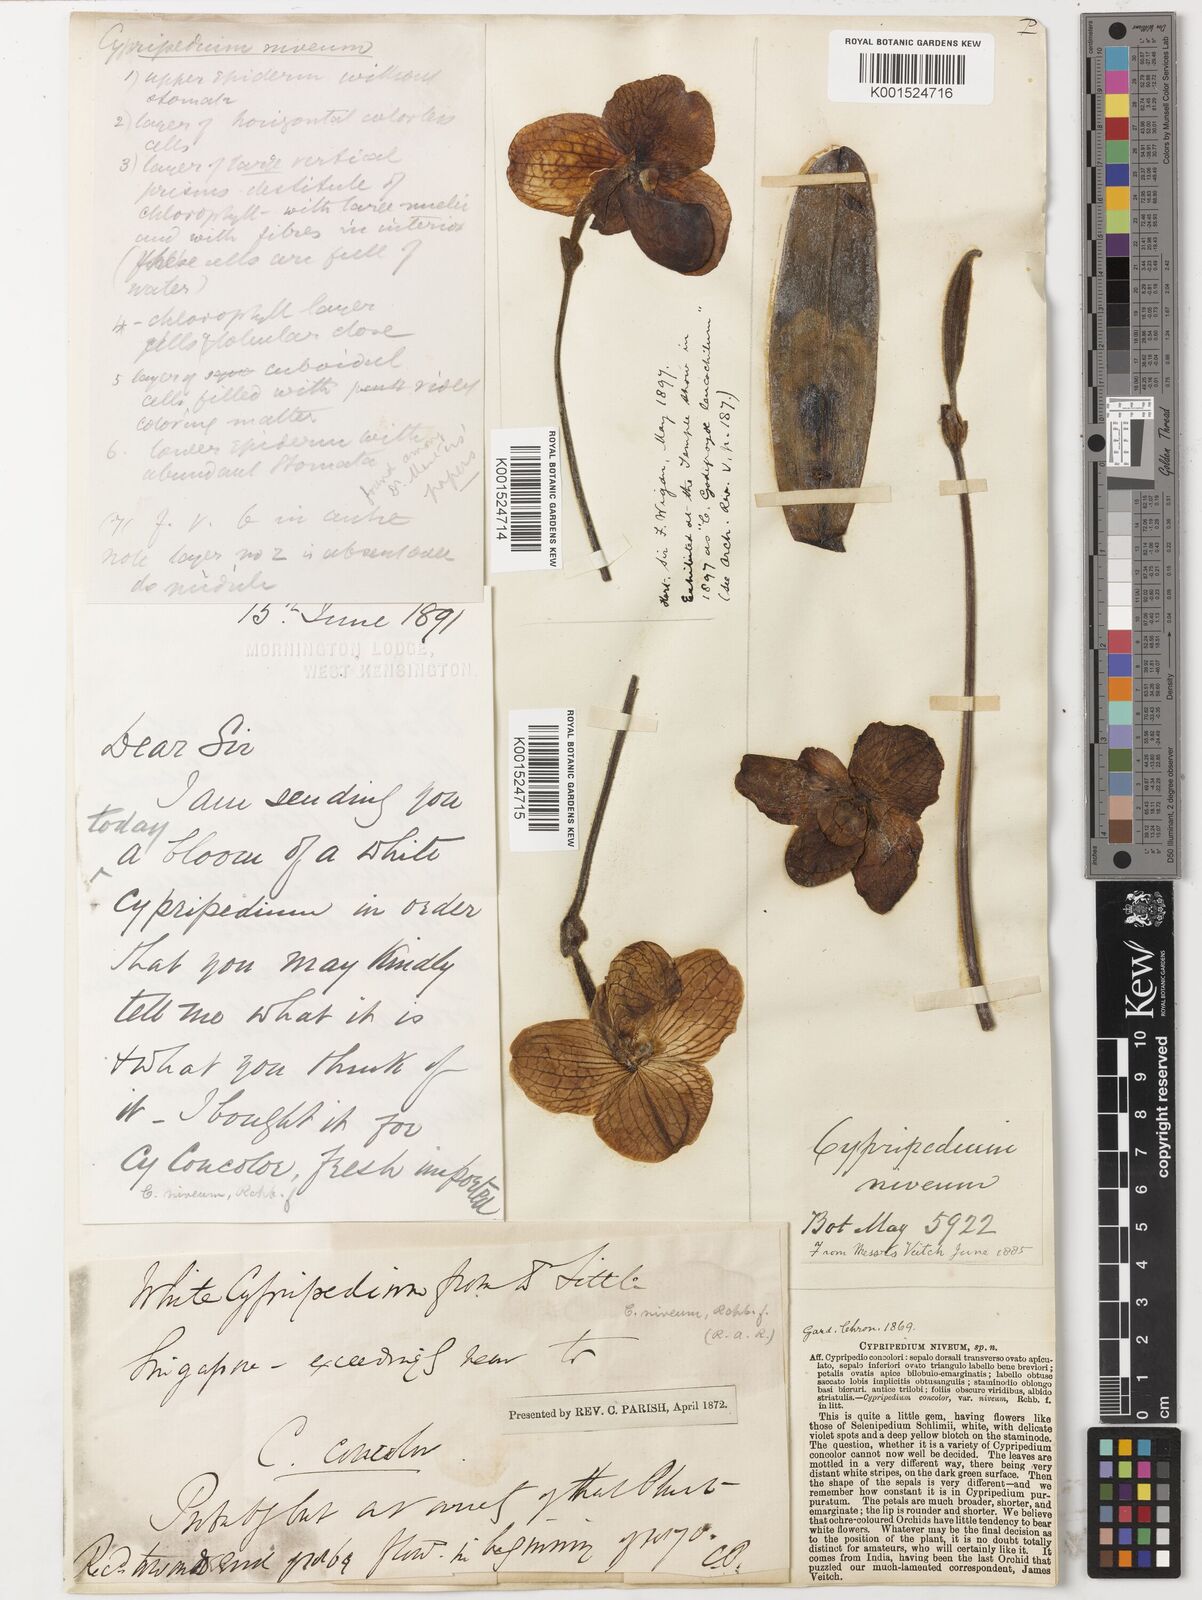 Cypripedium niveum
1) upper epiderm without
stomata
2) layer of horizontal colorless
cells
3) layer of large vertical
prisms destitute of
chlorophyll - with large nuclei
and with fibres in interior
(these cells are full of
water)
4 - chlorophyll layer
cells globular close
5 layer of cuboidal
cells filled with violet
coloring matter
6. lower epiderm with
abundant stomata
found among
Dr.
papers
note layer no 2 is absent
do
15th June 1891
MORNINGTON LODGE,
WEST KENSINGTON.
Dear Sir
I am sending you
today
a bloom of a white
Cypripedium in order
that you may kindly
tell me what it is
& what you think of
it - I bought it for
Cy Concolor, fresh imported
C. niveum, Rchb. f
White Cypripedium from Dr Little
C. niveum, Rchb. f.
(R. A. R.)
Singapore - exceedingly near to
Presented by REV. C. PARISH, April 1872.
C. concolor
Probably but a variety of that Plant
Recd towards end of 1869 flowd. in beginning of 1870.
C.P.
P
ROYAL BOTANIC GARDENS KEW
K001524716
ROYAL BOTANIC GARDENS KEW
K001524714
Hort. Sir F. Wigan, May 1897.
Exhibited at the Temple Show in
1897 as "C. Godefroyæ leucochilum"
(see Orch. Rev. V. p. 187.)
ROYAL BOTANIC GARDENS KEW
K001524715
Cypripedium
niveum
Bot Mag 5922
From Messrs Veitch June 1885
Gard. Chron. 1869.
CYPRIPEDIUM NIVEUM, sp. n.
Aff. Cypripedio concolori: sepalo dorsali transverso ovato apicu-
lato, sepalo inferiori ovato triangulo labello bene breviori;
petalis ovatis apice bilobuio-emarginatis; labello obtuse
saccato lobis implicitis obtusangulis; staminodio oblongo
basi bicruri. antice trilobi; foliis obscure viridibus, albido
striatulis.—Cypripedium concolor, var. niveum, Rchb. f.
in litt.
This is quite a little gem, having flowers like
those of Selenipedium Schlimii, white, with delicate
violet spots and a deep yellow blotch on the staminode.
The question, whether it is a variety of Cypripedium
concolor cannot now well be decided. The leaves are
mottled in a very different way, there being very
distant white stripes, on the dark green surface. Then
the shape of the sepals is very different—and we
remember how constant it is in Cypripedium pur-
puratum. The petals are much broader, shorter, and
emarginate; the lip is rounder and shorter. We believe
that ochre-coloured Orchids have little tendency to bear
white flowers. Whatever may be the final decision as
to the position of the plant, it is no doubt totally
distinct for amateurs, who will certainly like it. It
comes from India, having been the last Orchid that
puzzled our much-lamented correspondent, James
Veitch.
Colors by Munsell Color Services Lab
Golden Thread
inches
D50 Illuminant, 2 degree observer
Density
Kew
ROYAL BOTANIC GARDENS
0 1 2 3 4 5 6 7 8 9 10
cm